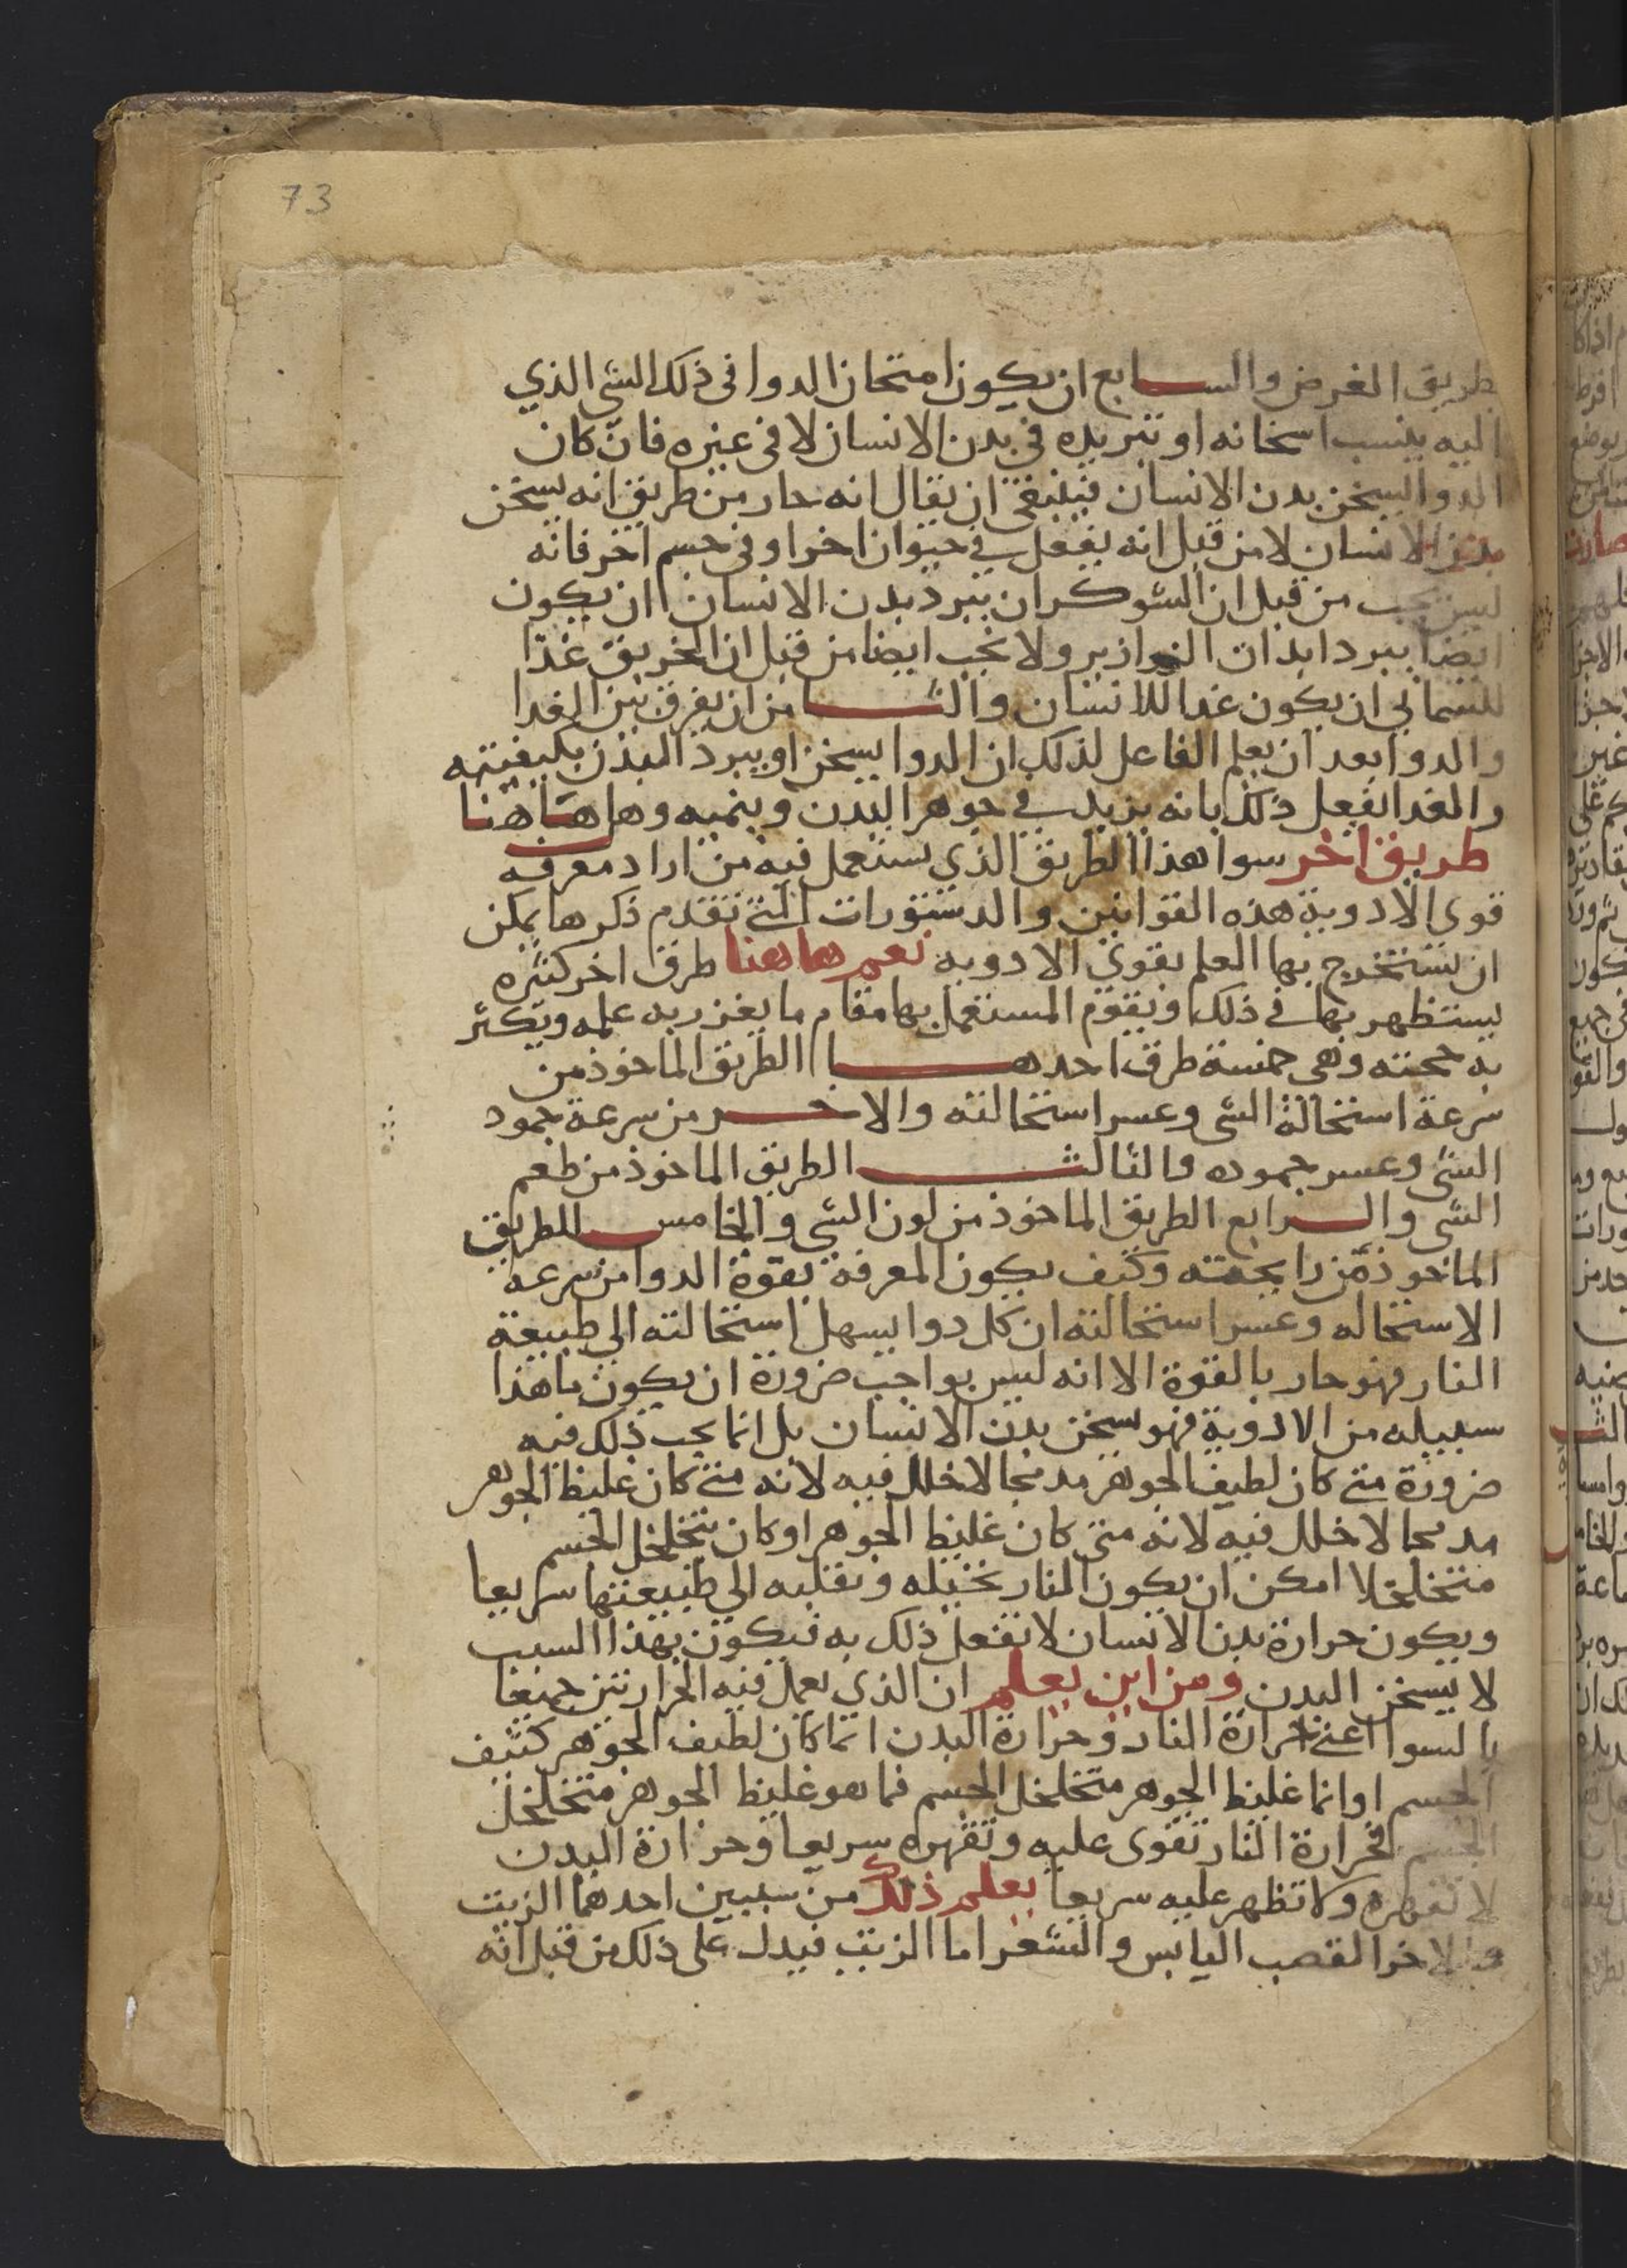 73
بطريق الغرض والسابع ان يكون امتحان الدوا فى ذلك الشى الذي
اليه ينسب اسخانه او تبريده في بدن الانسان لا فى غيره فان كان
الدوا يسخن بدن الانسان فينبغى ان يقال انه حار من طريق انه يسخن
بدن الانسان لا من قبل انه يفعل في حيوان اخر او فى جسم اخر فانه
ليس يجب من قبل ان الشوكران يبرد بدن الانسان ان يكون
ايضا يبرد ابدان الزرازير ولا يجب ايضا من قبل ان الخربق غذا
للسمانى ان يكون غدا للانسان والثامن ان يفرق بين الغدا
والدوا بعد ان يعلم الفاعل لذلك ان الدوا يسخن او يبرد البدن بكيفيته
والغدا يفعل ذلك بانه يزيد في جوهر البدن وينميه وهل هاهنا
طريق اخر سوا هذا الطريق الذي يستعمل فيه من اراد معرفه
قوى الادوية هذه القوانين والدستورات التى تقدم ذكرها يمكن
ان يستخرج بها العلم بقوى الادويه نعم هاهنا طرق اخر كثيره
يستظهر بها في ذلك ويقوم المستعمل بها مقام ما يغزر به علمه ويكثر
به حجته وهى خمسة طرق احدها الطريق الماخوذ من
سرعة استحالة الشى وعسر استحالته والاخر من سرعة جمود
الشى وعسر جموده والثالث الطريق الماخوذ من طعم
الشى والرابع الطريق الماخوذ من لون الشى والخامس الطريق
الماخوذ من رايحته وكيف يكون المعرفة بقوة الدوا من سرعة
الاستحاله وعسر استحالته ان كل دوا يسهل استحالته الى طبيعة
النار فهو حار بالقوة الا انه ليس بواجب ضرورة ان يكون ما هذا
سبيله من الادوية فهو يسخن بدن الانسان بل انما يجب ذلك فيه
ضرورة متى كان لطيف الجوهر مدمجا لا خلل فيه لانه متى كان غليظ الجوهر
مدمجا لا خلل فيه لانه متى كان غليظ الجوهر او كان متخلخل الجسم
متخلخلا امكن ان يكون النار تحيله وتقلبه الى طبيعتها سريعا
ويكون حرارة بدن الانسان لا تفعل ذلك به فيكون بهذا السبب
لا يسخن البدن ومن اين يعلم ان الذي يعمل فيه الحرارتين جميعا
بالسوا اعنى حرارة النار وحرارة البدن انما كان لطيف الجوهر كثيف
الجسم او انما غليظ الجوهر متخلخل الجسم فما هو غليظ الجوهر متخلخل
الجسم فحرارة النار تقوى عليه وتقهره سريعا وحرارة البدن
لا تقهره ولا تظهر عليه سريعا يعلم ذلك من سببين احدهما الزيت
والاخر القصب اليابس والشعر اما الزيت فيدل على ذلك من قبل انه